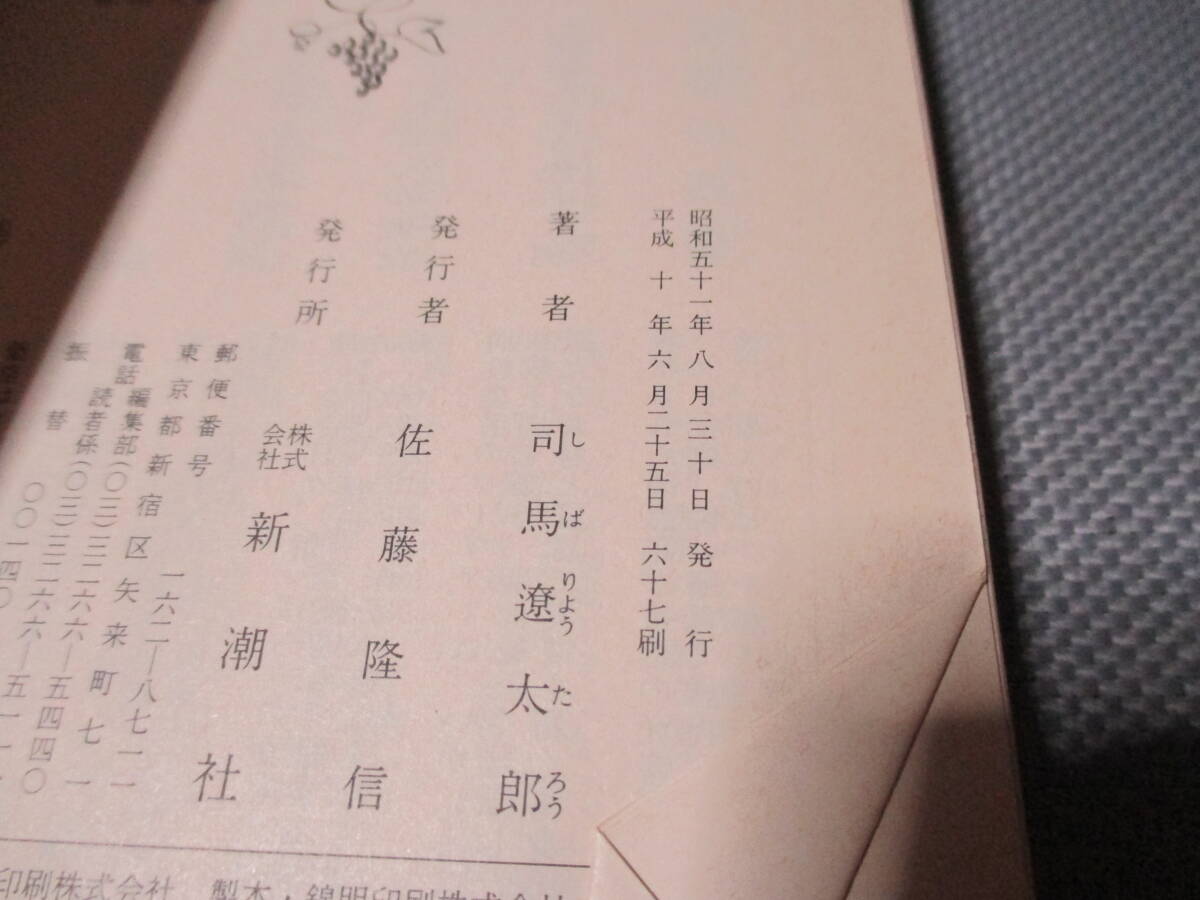 昭和五十一年八月三十日 発行
平成十年六月二十五日 六十七刷
著者 司馬遼太郎
しばりょうたろう
発行者 佐藤隆信
発行所 株式会社 新潮社
郵便番号 一六二—八七一一
東京都新宿区矢来町七一
電話 編集部(〇三)三二六六—五四四〇
読者係(〇三)三二六六—五一一
振替 〇〇一四〇
印刷株式会社 製本・錦明印刷株式会社